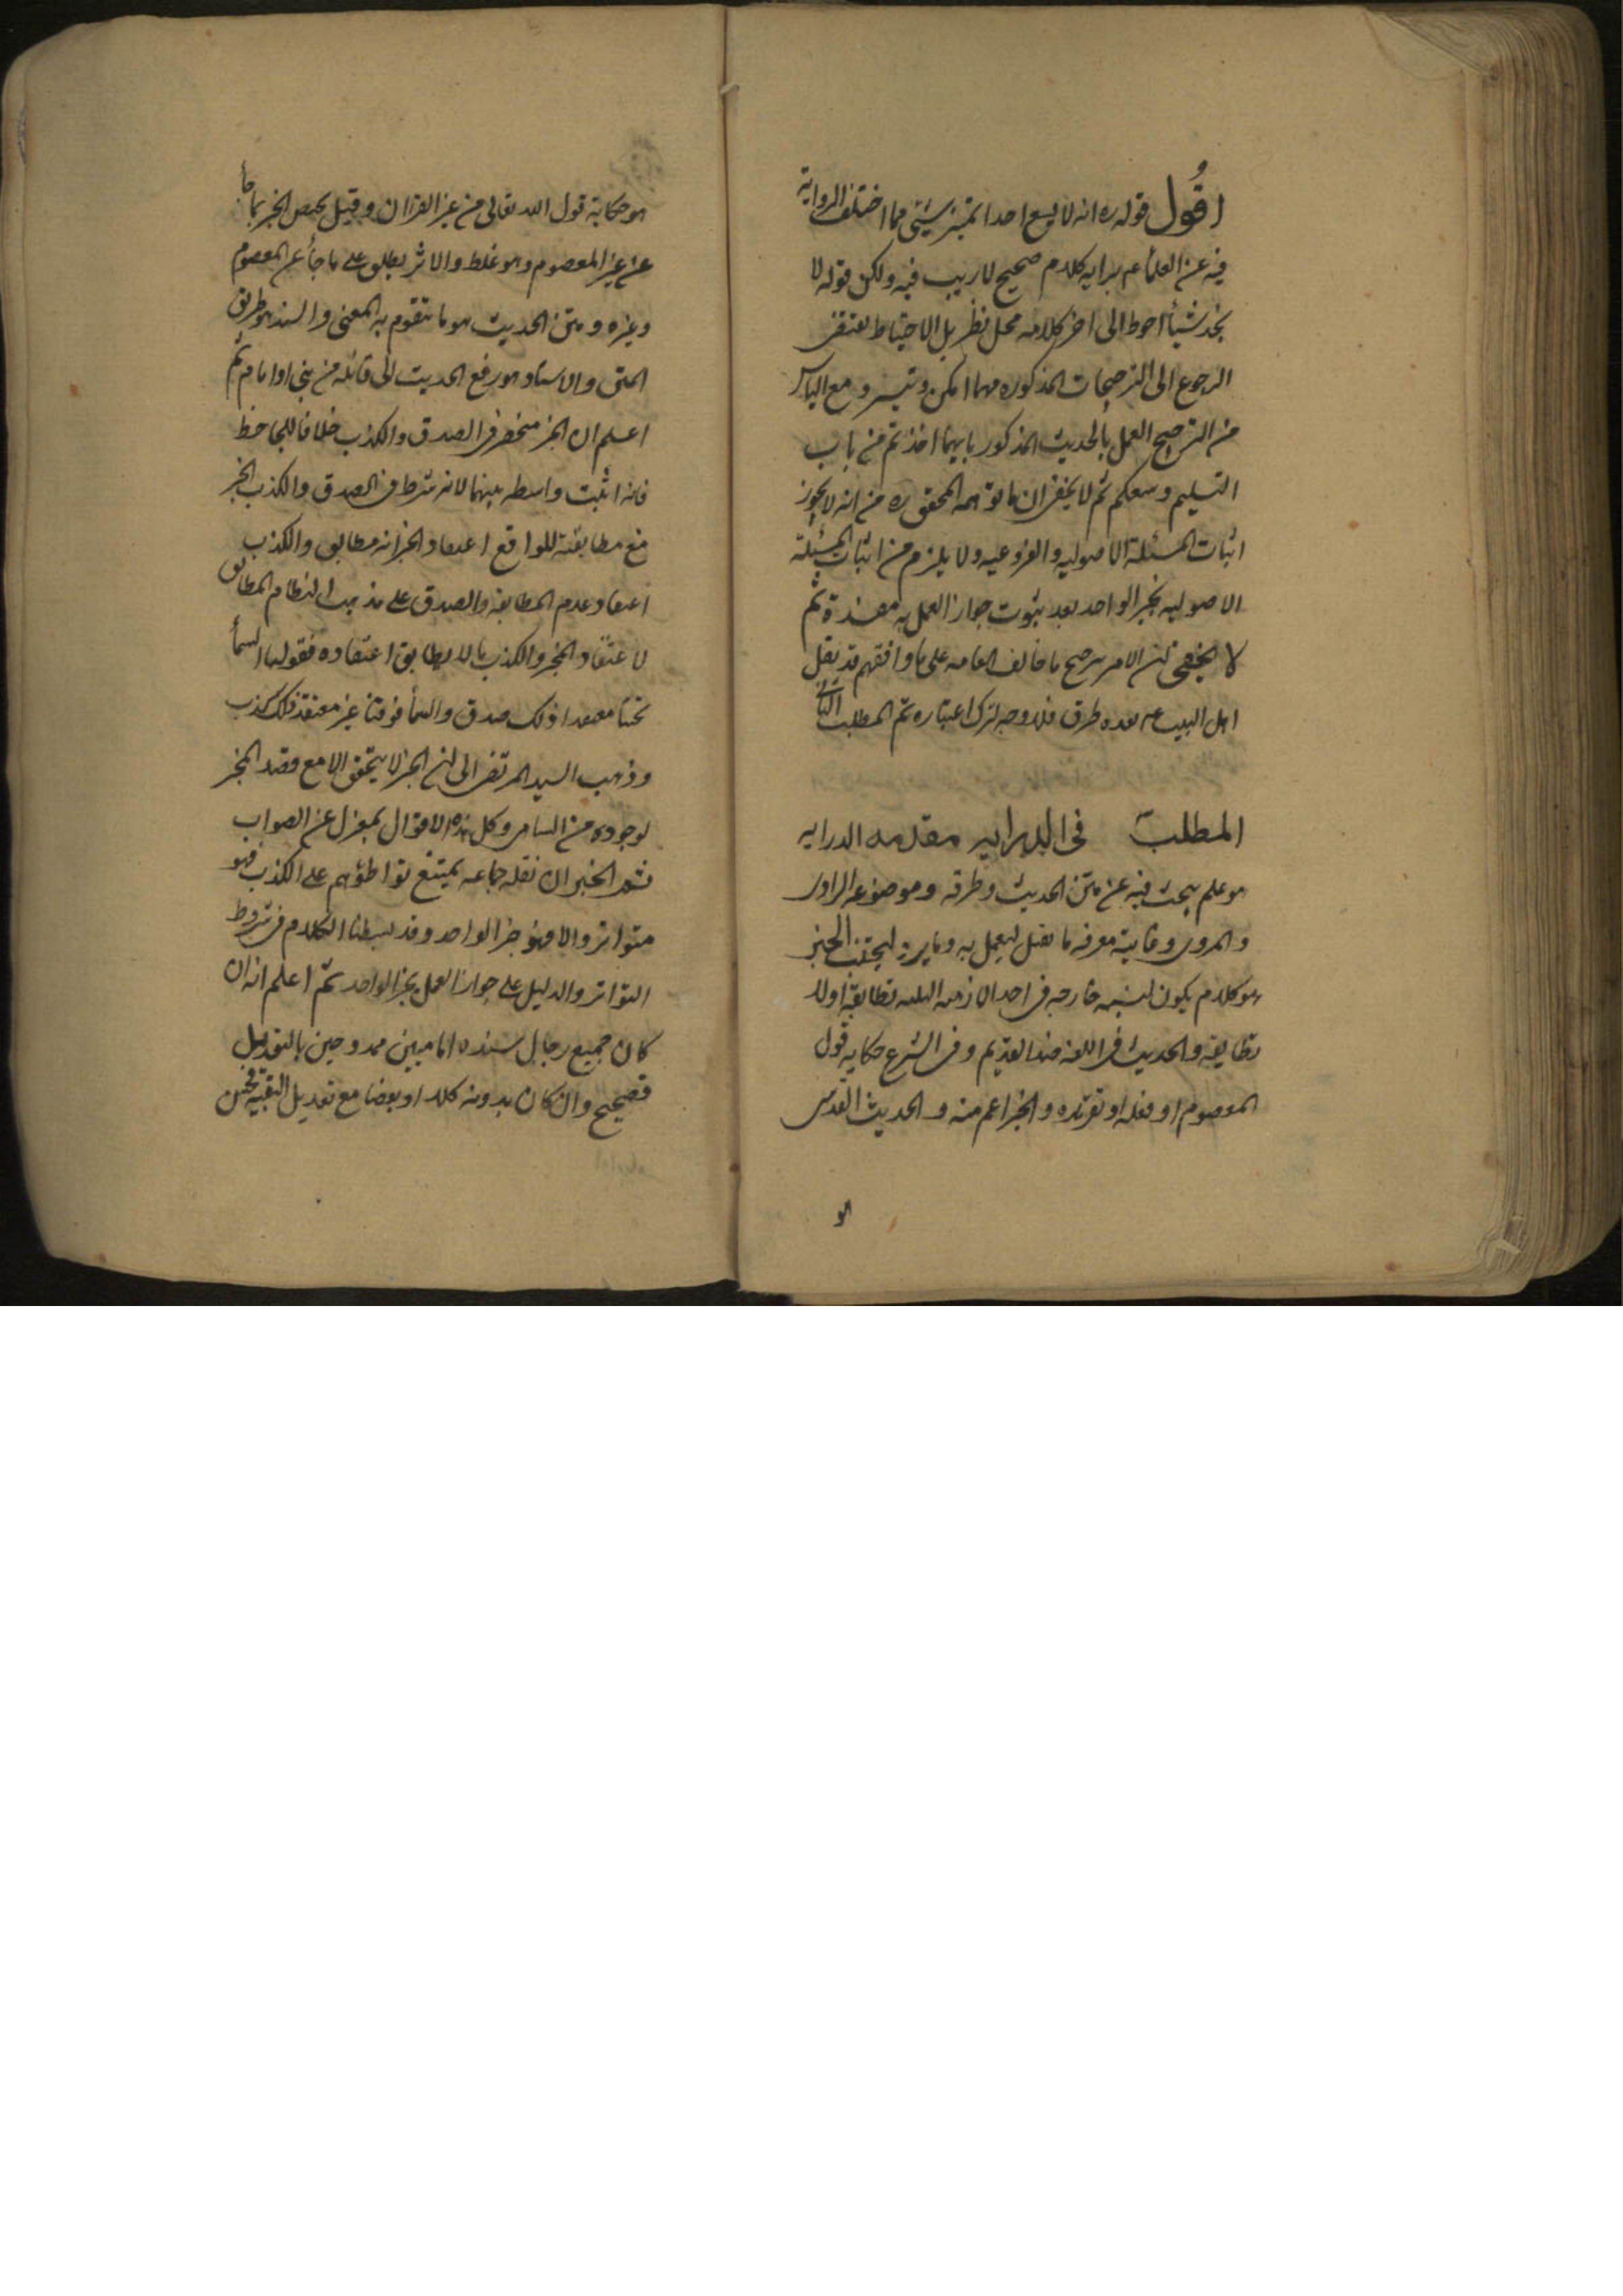 اقول قوله ره انه لا يسع احدا تميز شيئ مما اختلف الرواية
فيه عن العلماء عم برايه كلام صحيح لا ريب فيه ولكن قوله لا
نجد شيئا احوط الى اخر كلامه محل نظر بل الاحتياط يقتضى
الرجوع الى الترجيحات المذكوره مهما امكن وتيسر ومع الياس
من الترجيح العمل بالحديث المذكور بايهما اخذتم من باب
التسليم وسعكم ثم لا يخفى ان ما توهمه المحقق ره من انه لا يجوز
اثبات المسئلة الاصوليه والفروعيه ولا يلزم من اثبات المسئلة
الاصوليه بخبر الواحد بعد ثبوت جواز العمل به مفسدة ثم
لا يخفى ان الامر بترجيح ما خالف العامه على ما وافقهم قد نقل
اهل البيت عم بعده طرق فلا وجه لترك اعتباره تم المطلب الثانى
المطلب فى الدرايه مقدمه الدرايه
هو علم يبحث فيه عن متن الحديث وطرقه وموضوعه الراوى
والمروى وغايته معرفه ما يقبل ليعمل به وما يرد ليجتنب الخبر
هو كلام يكون لنسبه خارجه فى احد الازمنه الثلثه تطابقه او لا
تطابقه والحديث فى اللغه ضد القديم وفى الشرع حكايه قول
المعصوم او فعله او تقريره والخبر اعم منه والحديث القدسى
هو
هو حكاية قول الله تعالى من غير القران وقيل يختص الخبر بما جأ
عن غير المعصوم وهو غلط والاثر يطلق على ما جأ عن المعصوم
وغيره ومتن الحديث هو ما يتقوم به المعنى والسند هو طريق
المتن والاسناد هو رفع الحديث الى قائله من نبى او امام ثم
اعلم ان الخبر منحصر فى الصدق والكذب خلافا للجاحظ
فانه اثبت واسطه بينهما لانه شرط فى الصدق والكذب الخبر
مع مطابقته للواقع اعتقاد المخبر انه مطابق والكذب
اعتقاد عدم المطابقه والصدق على مذهب النظام المطابق
لاعتقاد المخبر والكذب ما لا يطابق اعتقاده فقولنا السمأ
تحتنا معتقدا ذلك صدق والسمأ فوقنا غير معتقد ذلك كذب
وذهب السيد المرتضى الى ان الخبر لا يتحقق الا مع قصد المخبر
لوجوده من الساهى وكل هذه الاقوال بمعزل عن الصواب
ثم الخبر ان نقله جماعه يمتنع تواطؤهم على الكذب فهو
متواتر والا فهو خبر الواحد وقد بسطنا الكلام فى شروط
التواتر والدليل على جواز العمل بخبر الواحد ثم اعلم انه ان
كان جميع رجال سنده اماميين ممدوحين بالتعديل
فصحيح وان كان بدونه كلا او بعضا مع تعديل البقيه فحسن